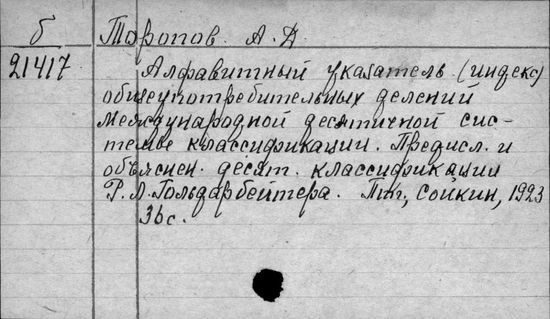 б Торопов. А. Д
21417. Алфавитный указатель (индекс)
общеупотребительных делений
международной десятичной сис-
теме классификации. Предисл. и
объяснен. десят. классификации
Р. Л. Гольдарбейтера. Птг, Сойкин, 1923
36с.